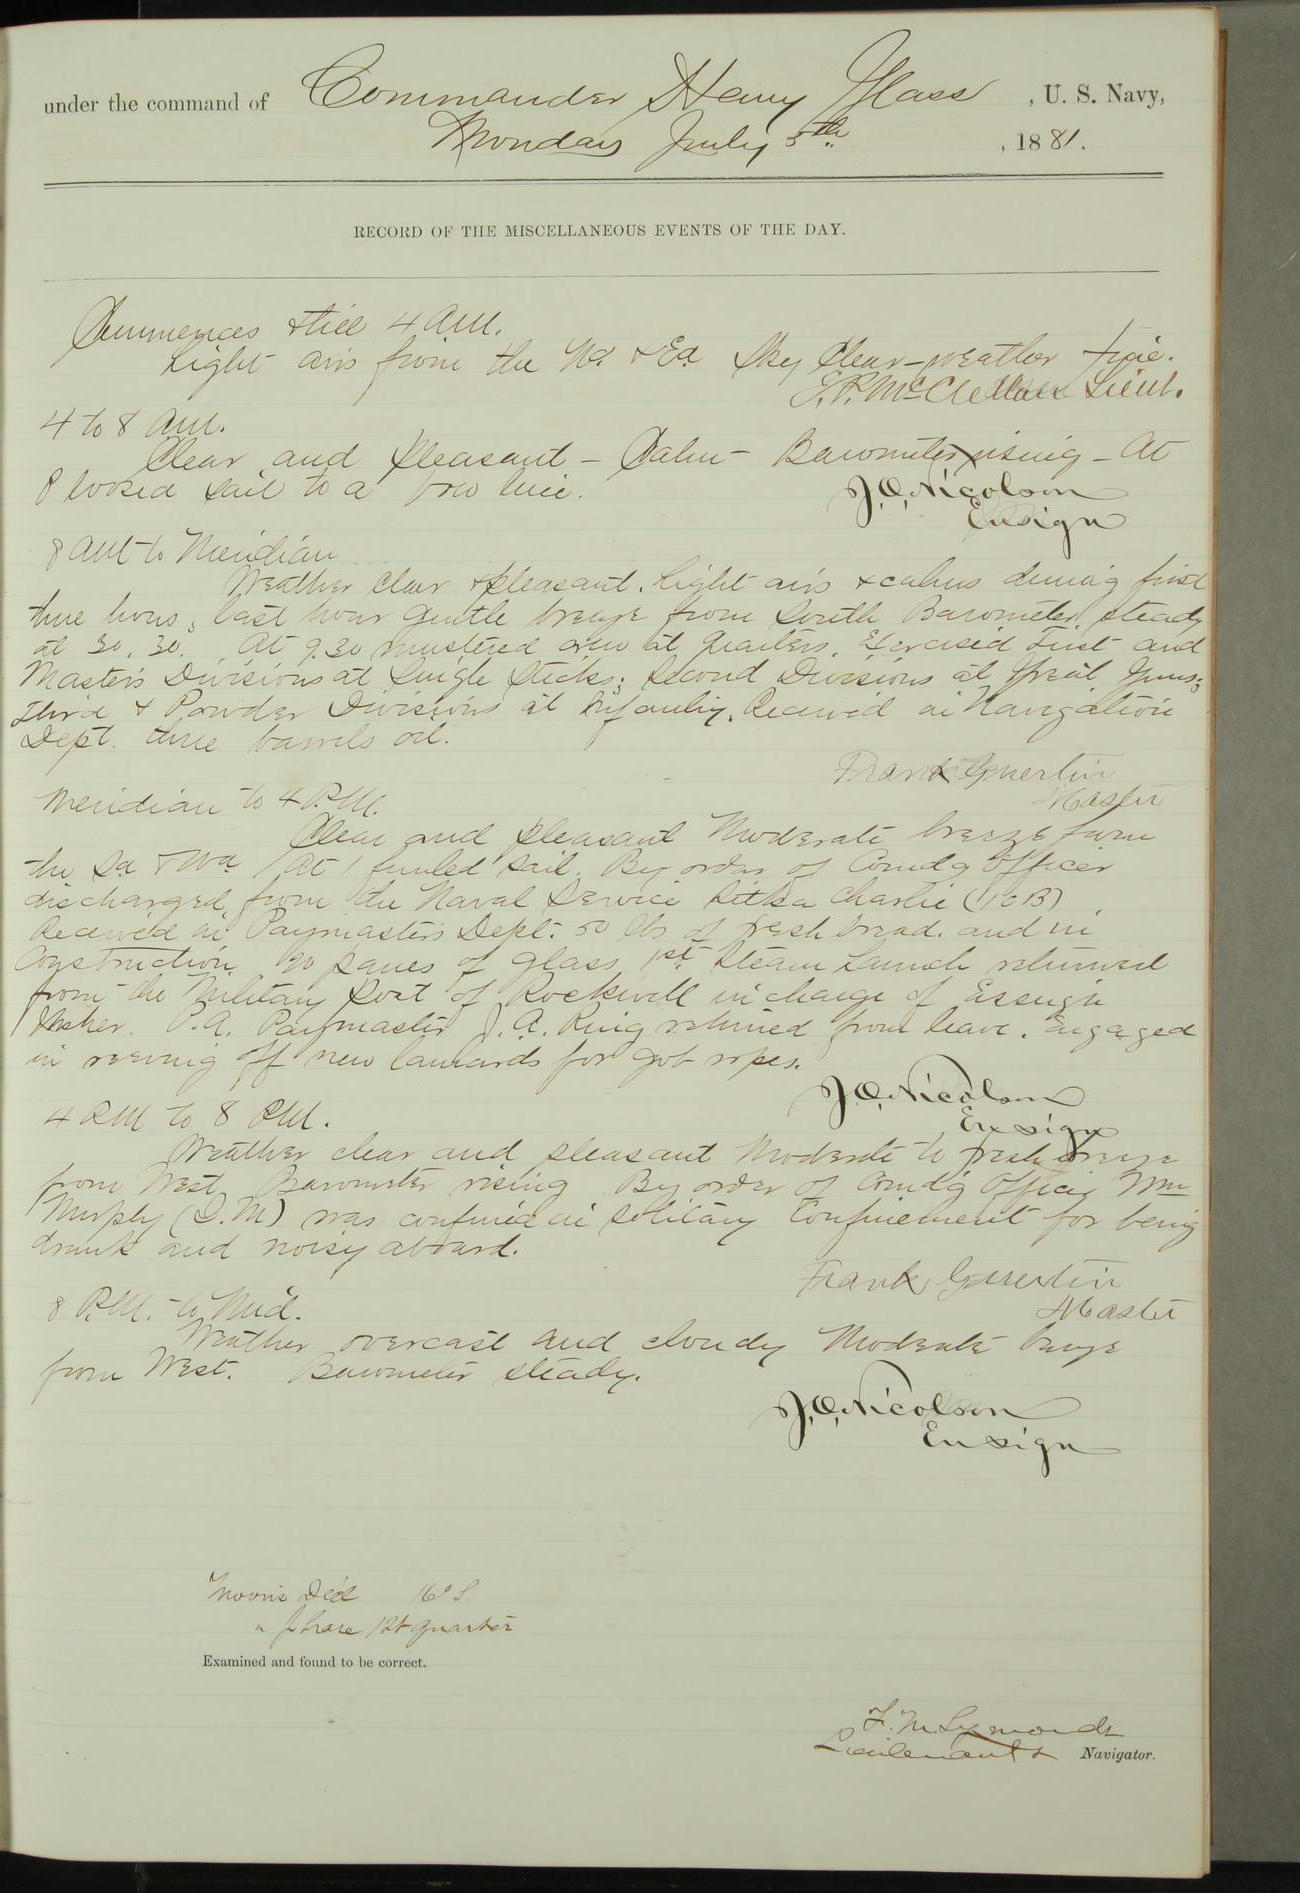 under the command of Commander Henry Glass, U. S. Navy,
Monday July 5th, 1881.
RECORD OF THE MISCELLANEOUS EVENTS OF THE DAY.
Commences & till 4 A.M.
Light airs from the Nd & Ed Sky Clear—weather fine.
E.P. McClellan Lieut.
4 to 8 A.M.
Clear and pleasant — Calm — Barometer rising — At
8 loosed sail to a bow line.
J.O. Nicolson
Ensign
8 A.M. to Meridian
Weather clear & pleasant. Light airs & calms during first
three hours, last hour gentle breeze from South Barometer steady
at 30.30. At 9.30 mustered crew at quarters. Exercised First and
Masters Divisions at Single Sticks; Second Divisions at Great Guns;
Third & Powder Divisions at Infantry. Received in Navigation
Dept. three barrels oil.
Frank Guertin
Master
Meridian to 4 P.M.
Clear and pleasant Moderate breeze from
the Sd & Wd At 1 furled sail. By order of Comdg Officer
discharged from the Naval Service Sitka Charlie (1 c B)
Received in Paymasters Dept. 50 lbs of fresh bread. and in
Construction 20 panes of glass 1st Steam Launch returned
from the Military Post of Rockwell in charge of Ensign
Usher. P.A. Paymaster J.A. Ring returned from leave. Engaged
in reeving off new laniards for gob ropes.
J.O. Nicolson
Ensign
4 P.M to 8 P.M.
Weather clear and pleasant Moderate to fresh breeze
from West Barometer rising By order of Comdg Officer Wm
Murphy (D.M) was confined in solitary confinement for being
drunk and noisy aboard.
Frank Guertin
Master
8 P.M. to Mid.
Weather overcast and cloudy Moderate breeze
from West. Barometer steady.
J.O. Nicolson
Ensign
Moon's Decl 16° S.
" Phase 1st quarter
Examined and found to be correct.
F. M. Symonds
Lieutenant & Navigator.